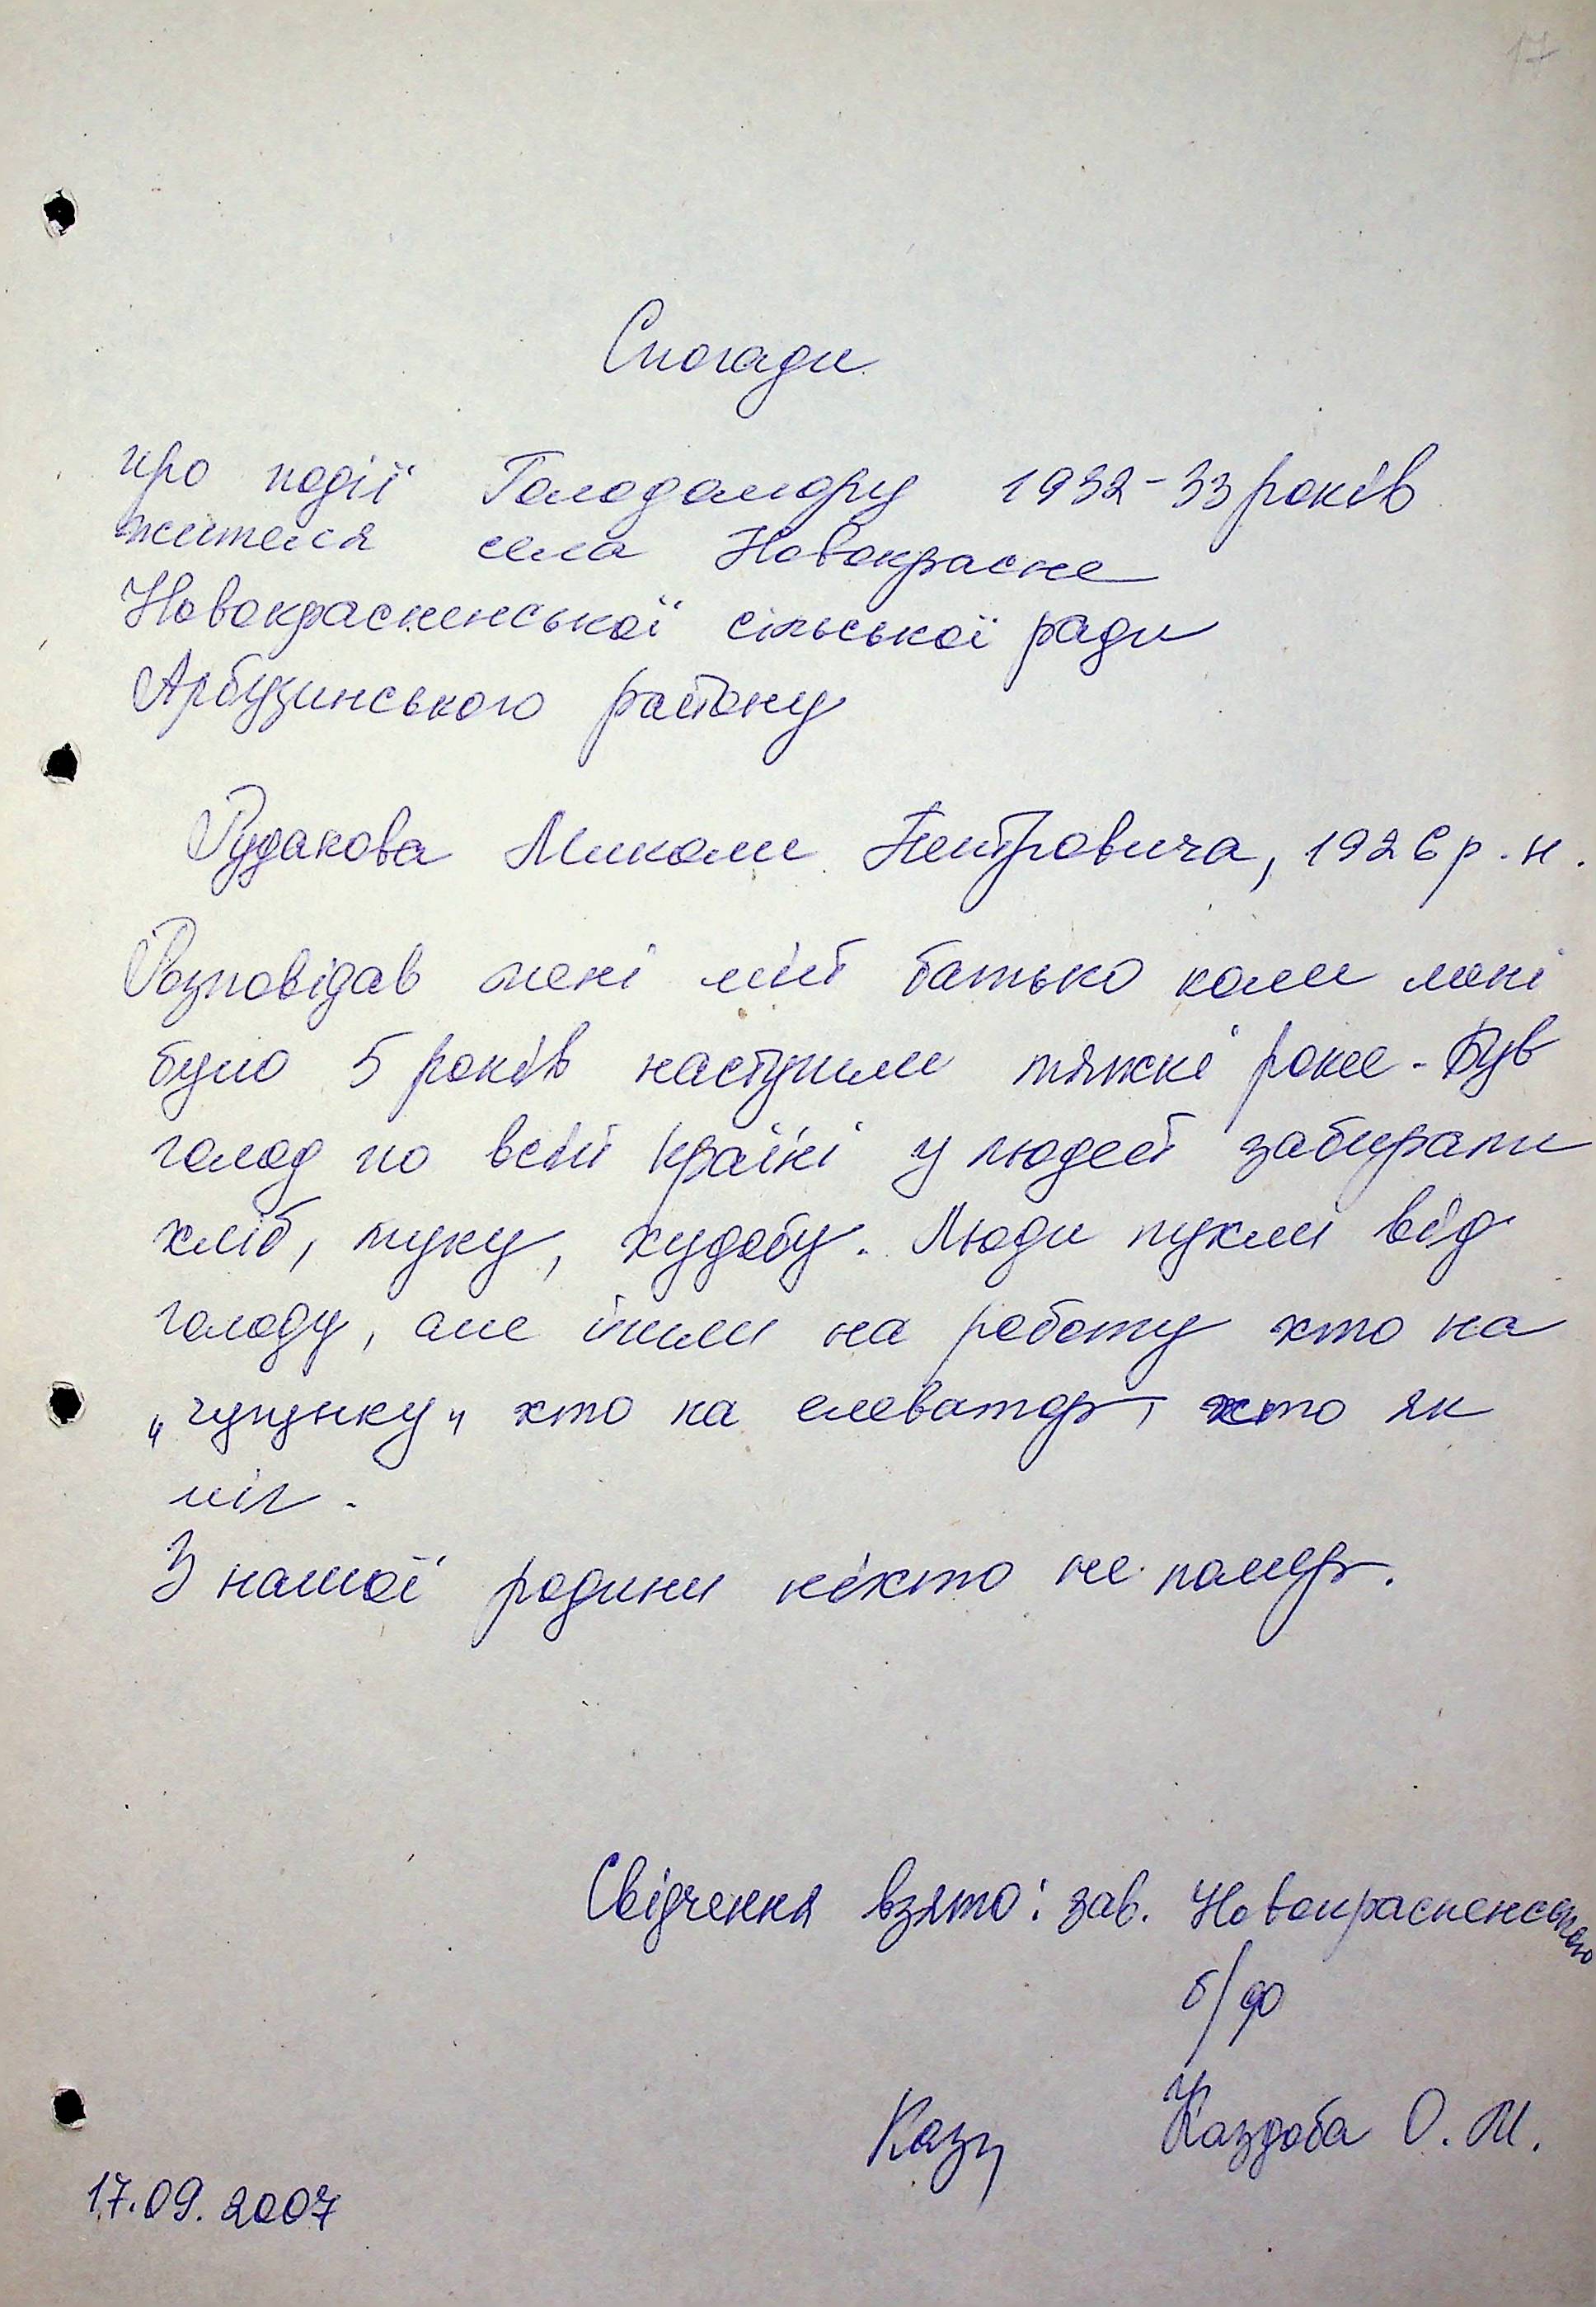 17
Спогади
про події Голодомору 1932-33 років
жителя села Новокрасне
Новокрасненської сільської ради
Арбузинського району
Рудакова Миколи Петровича, 1926 р.н.
Розповідав мені мій батько коли мені
було 5 років наступили тяжкі роки. Був
голод по всій країні у людей забирали
хліб, муку, худобу. Люди пухли від
голоду, але ішли на роботу хто на
„чугунку„ хто на елеватор, хто як
міг.
З нашої родини ніхто не помер.
Свідчення взято: зав. Новокрасненською
б/ф
Каздоба О.М.
17.09.2007